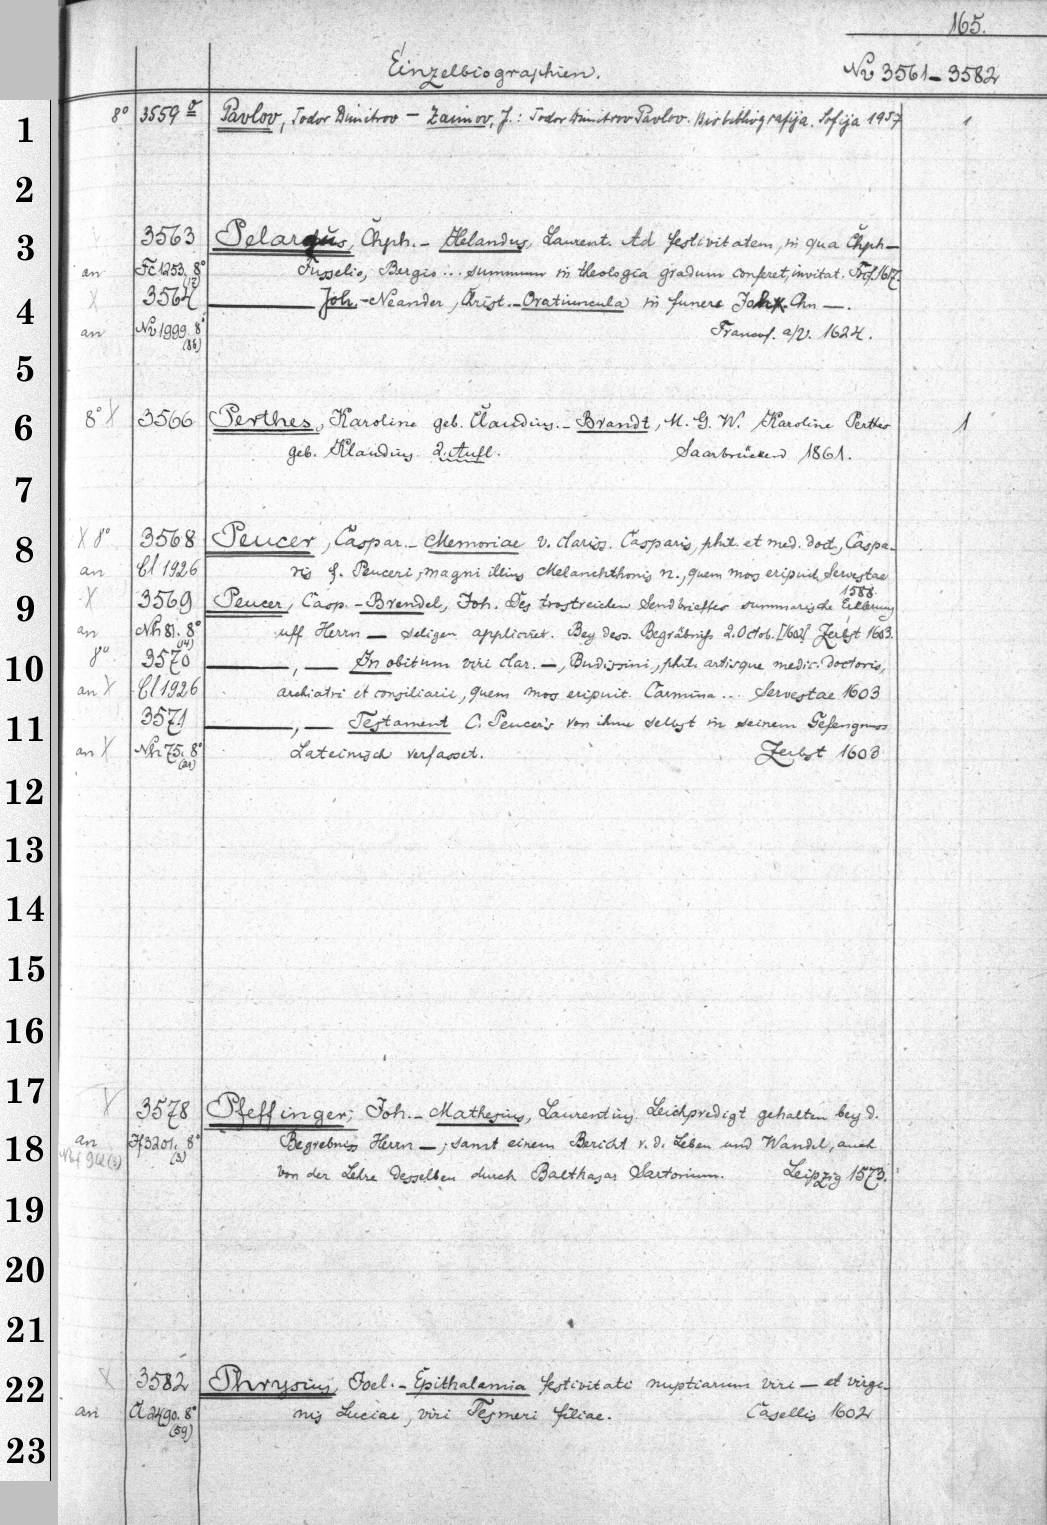 165.
Einzelbiographien. Nv 3561–3582
1 8° 3559 a Pavlov, Todor Dimitrov – Zaimov, J.: Todor Dimitrov Pavlov. Biobibliografija. Sofija 1957 1
2
3 3563 Pelargus, Chph. – Helandus, Laurent. Ad festivitatem, in qua Chph –
an Fc 1253. 8° (12) Fusselio, Bergis ... summum in theologia gradum conferet, invitat. Frf. 1617.
4 X 3564 ——— Joh. – Neander, Crist. – Oratiuncula in funere Joh. Chn —.
an Nv 1999. 8° (86) Francof. a/V. 1624.
5
6 8° X 3566 Perthes, Karoline geb. Claudius. – Brandt, M. G. W. Karoline Perthes 1
geb. Klaudius 2. Aufl. Saarbrücken 1861.
7
8 X 8° 3568 Peucer, Caspar. – Memoriae v. clariss. Casparis, phil. et med. doct, Caspa-
an Cl 1926 ris f. Peuceri, magni illius Melanchthonis n., quem mos eripuit. Servestae
1588.
9 X 3569 Peucer, Casp. – Brendel, Joh. Des trostreichen Sendbrieffes summarische Erklerung
an Nh 81. 8° (14) uff Herrn — seligen appliciret. Bey dess. Begräbniss 2. Octob. [1602] Zerbst 1603.
10 8° 3570 ———, — In obitum viri clar. —, Budissini, phil. artisque medic. doctoris,
an X Cl 1926 archiatri et consiliarii, quem mos eripuit. Carmina ... Servestae 1603
11 3571 ———, — Testament C. Peucer's von ihme selbst in seinem Gefengnuss
an X Nh 75. 8° (21) Lateinisch verfasset. Zerbst 1603
12
13
14
15
16
17 X 3578 Pfeffinger, Joh. – Mathesius, Laurentius. Leichpredigt gehalten bey d.
18 an 3201. 8° (3) Begrebniss Herrn —; samt einem Bericht v. d. Leben und Wandel, auch
von der Lehre desselben durch Balthasar Sartorium. Leipzig 1573.
19
20
21
22 X 3582 Phrysius, Joel. – Epithalamia festivitati nuptiarum viri — et virgi-
an Cl 2490. 8° (59) nis Luciae, viri Tesmeri filiae. Casellis 1602
23